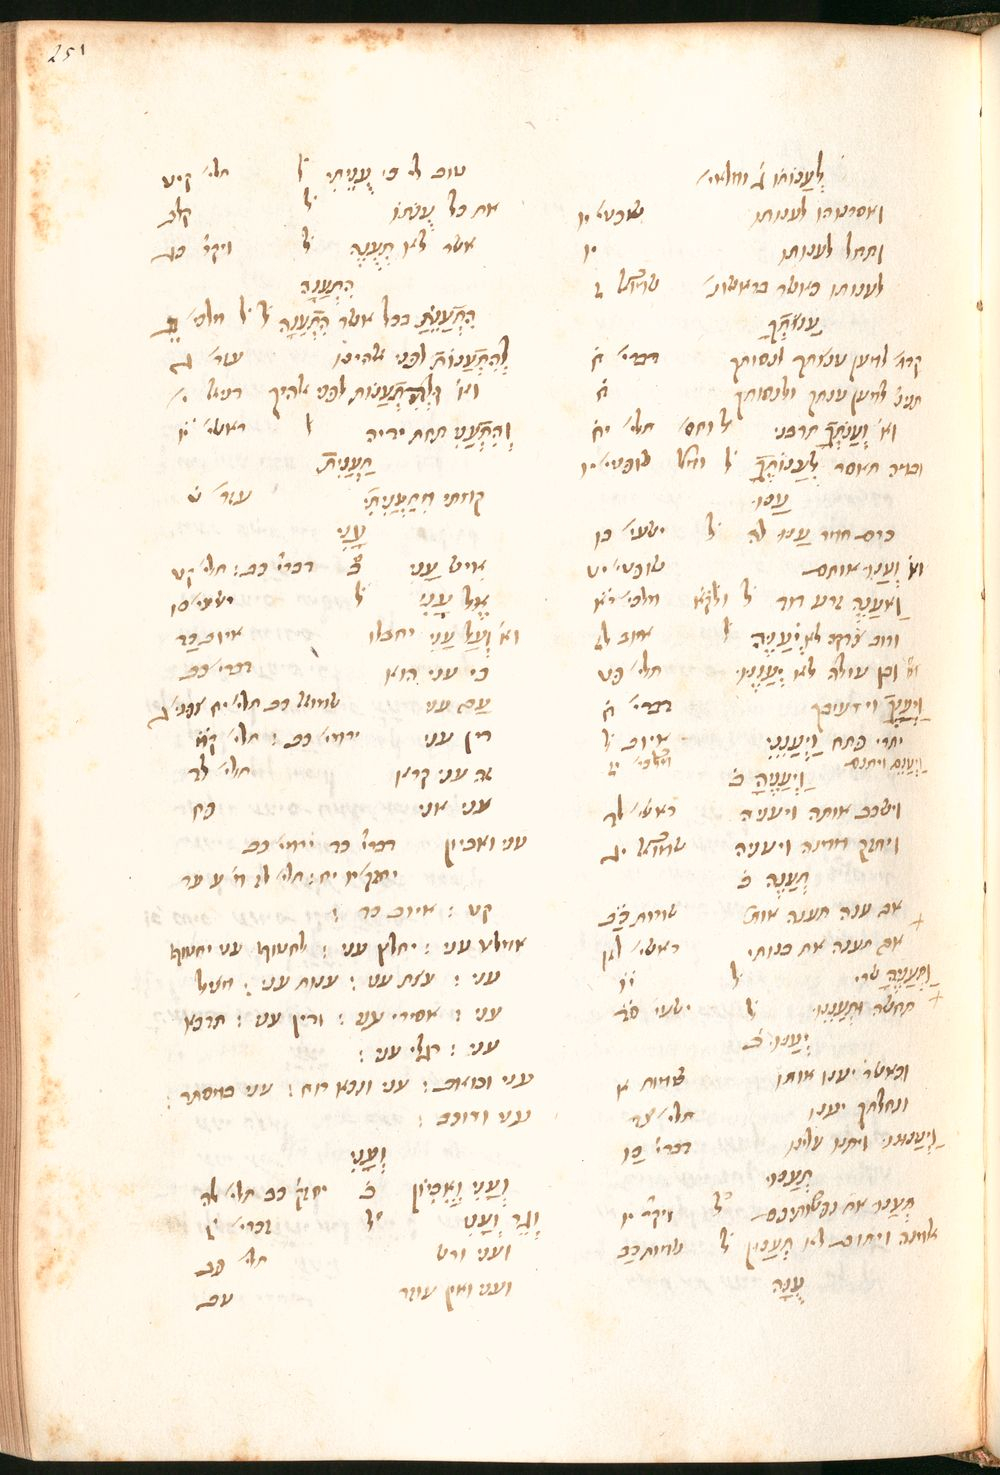 251
לְעַנּוֹתוֹ ג׳ ומלאי׳
ואסרנוהו לענותו שופטי׳ יו
ותחל לענותו יו
לענותו כאשר בראשונ׳ שמואל ב
עַנּוֹתְךָ
קדמ׳ למען ענותך לנסותך דברי׳ ח
תנינ׳ למען ענתך ולנסותך ח
וא׳ וְעַנְוָתְךָ תרבני ל וחס׳ תלי׳ יח
ובמה תאסר לְעַנּוֹתֶךָ ל ומל׳ שופטי׳ יו
עַנּוּ
כרם חמר עַנּוּ לה ל ישעי׳ כז
וא׳ וְעַנּוּ אותם שופטי׳ יט
וַאעַנֶּה זרע דוד ל ולק׳ א מלכי׳ יא
ורוב צדקה לא יְעַנֶּה ל איוב לז
וא׳ ובן עולה לא יְעַנֶּנּוּ תלי׳ פט
וַיְעַנְּךָ וירעיבך דברי׳ ח
יתרי פתח וַיְעַנֵּנִי איוב ל
וַיְעַנֵּם ויתנם מלכי׳ יז
וַיְעַנֶּהָ ב׳
וישכב אותה ויענה ראשי׳ לד
ויחזק ממנה ויענה שמואל יג
תְּעַנֶּה ב׳
אם ענה תענה אותו שמות כב
אם תענה את בנותי ראשי׳ לא
וַתְּעַנֶּהָ שרי ל יו
תחשה וּתְעַנֵּנוּ ל ישעי׳ סד
יְעַנּוּ ב׳
וכאשר יענו אותו שמות א
ונחלתך יענו תלי׳ צד
וַיְעַנּוּנוּ ויתנו עלינו דברי׳ כו
תְּעַנּוּ
תְּעַנּוּ את נפשותיכם ל ויקר׳ יו
אלמנה ויתום לא תְעַנּוּן ל שמות כב
עֻנָּה
טוב לי כי עֻנֵּיתִי ל תלי׳ קיט
את כל עֻנּוֹתוֹ ל קלב
אשר לא תְעֻנֶּה ל ויקר׳ כג
הִתְעַנָּה
הִתְעַנִּיתָ בכל אשר הִתְעַנָּה ל׳ ל׳ מלכי׳ ב
לְהִתְעַנּוֹת לפני אלהינו עזר׳ ח
וא׳ וּלְהִתְעַנּוֹת לפני אלהיך דניאל י׳
וְהִתְעַנִּי תחת ידיה ל ראשי׳ יו
תַעֲנִית
קמתי מִתַּעֲנִיתִי עזר׳ ט
עָנִי
איש עָנִי ב׳ דברי׳ כד: תלי׳ קט
אֶל עָנִי ל ישעי׳ סו
וא׳ וְעַל עָנִי יחבלו איוב כד
כי עני הוא דברי׳ כד
עַם עני שמואל כב תלי׳ יח צפני׳ ג
דין עני ירמי׳ כב: תלי׳ קמ
זה עני קרא תלי׳ לד
עני אני פח
עני ואביון דברי׳ כד ירמי׳ כב
יחזק׳ יו יח: תלי׳ לז מ׳ ע עד
קט: איוב כד:
אמלט עני: יחלץ עני: לחטוף עני יחטוף
עני: עצת עני: ענות עני: תציל
עני: אסירי עני: ודין עני: תדכא
עני: רגלי עני:
עני וכואב: עני ונכא רוח: עני במסתר:
עני ודווכב:
וְעָנִי
וְעָנִי וְאֶבְיוֹן ב׳ יחזק׳ כב תלי׳ לה
וְגֵר וְעָנִי ל זכרי׳ ז
ועני ורש תלי׳ פב
ועני ואין עוזר עב